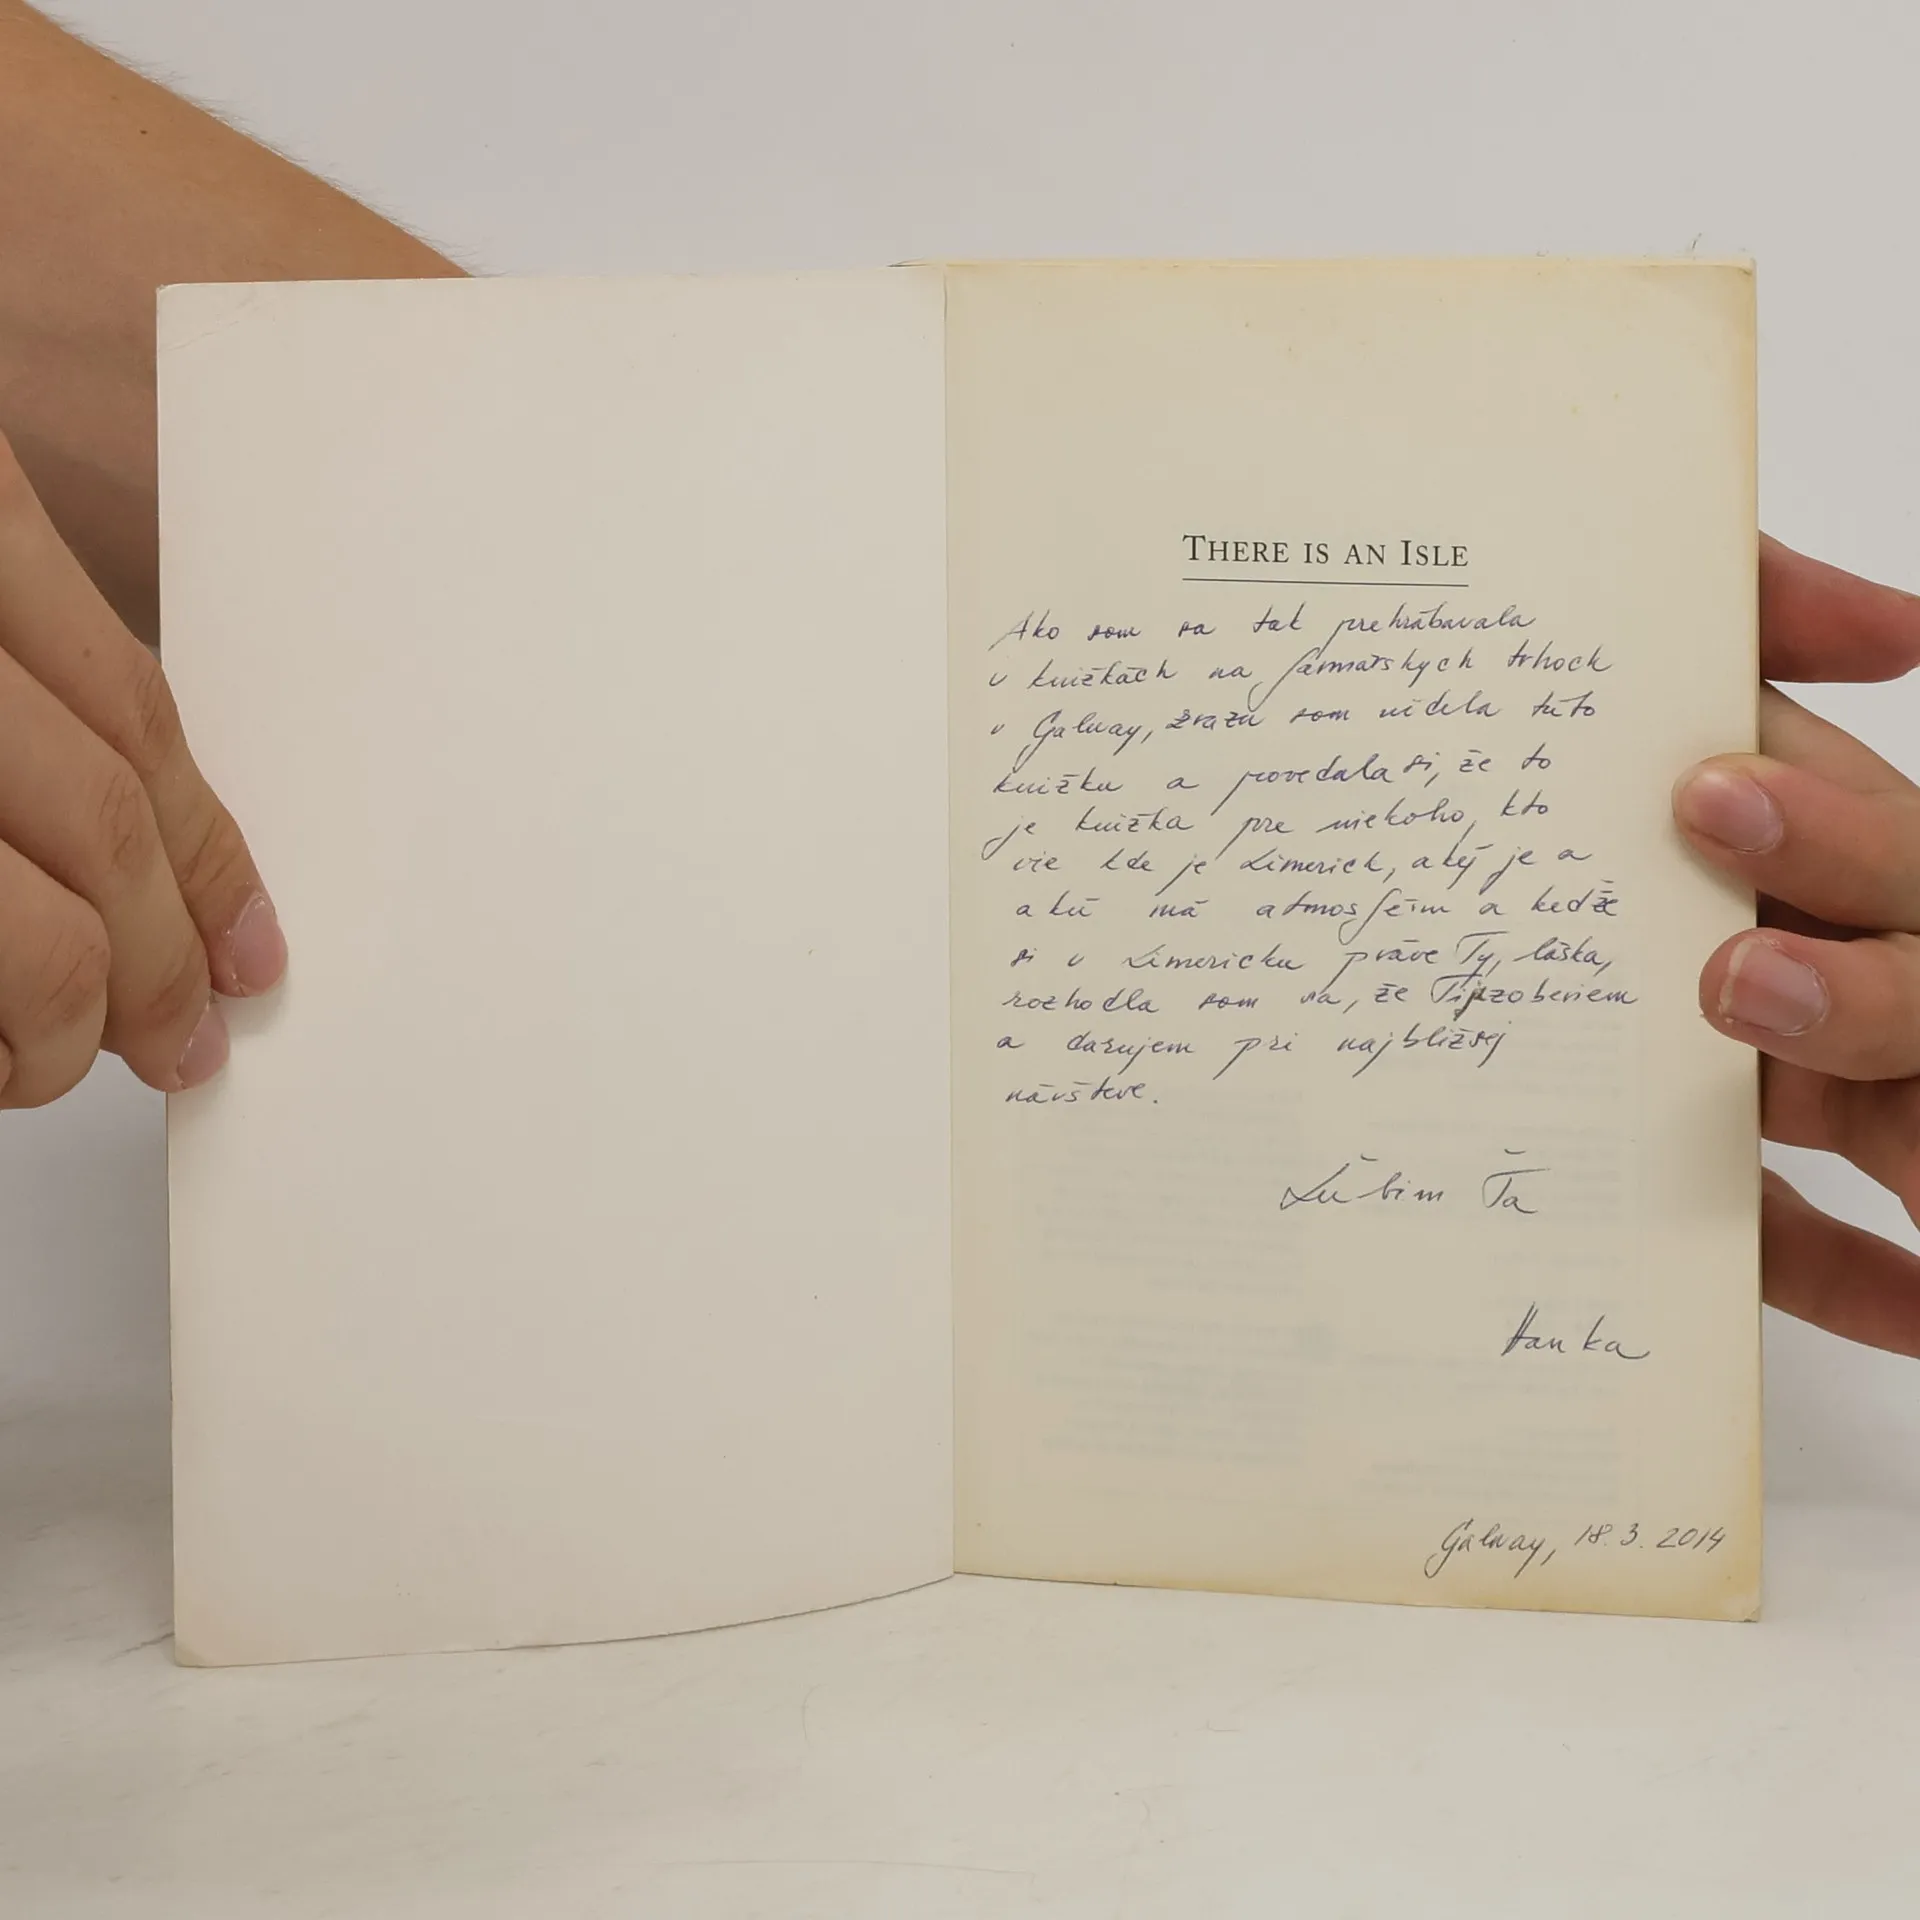 THERE IS AN ISLE
Ako som sa tak prehrabávala
v knižkách na farmárskych trhoch
v Galway, zrazu som videla túto
knižku a povedala si, že to
je knižka pre niekoho, kto
vie kde je Limerick, aký je a
akú má atmosféru a keďže
si v Limericku práve Ty, láska,
rozhodla som sa, že Ti ju zoberiem
a darujem pri najbližšej
návšteve.
Ľúbim Ťa
Hanka
Galway, 18.3.2014